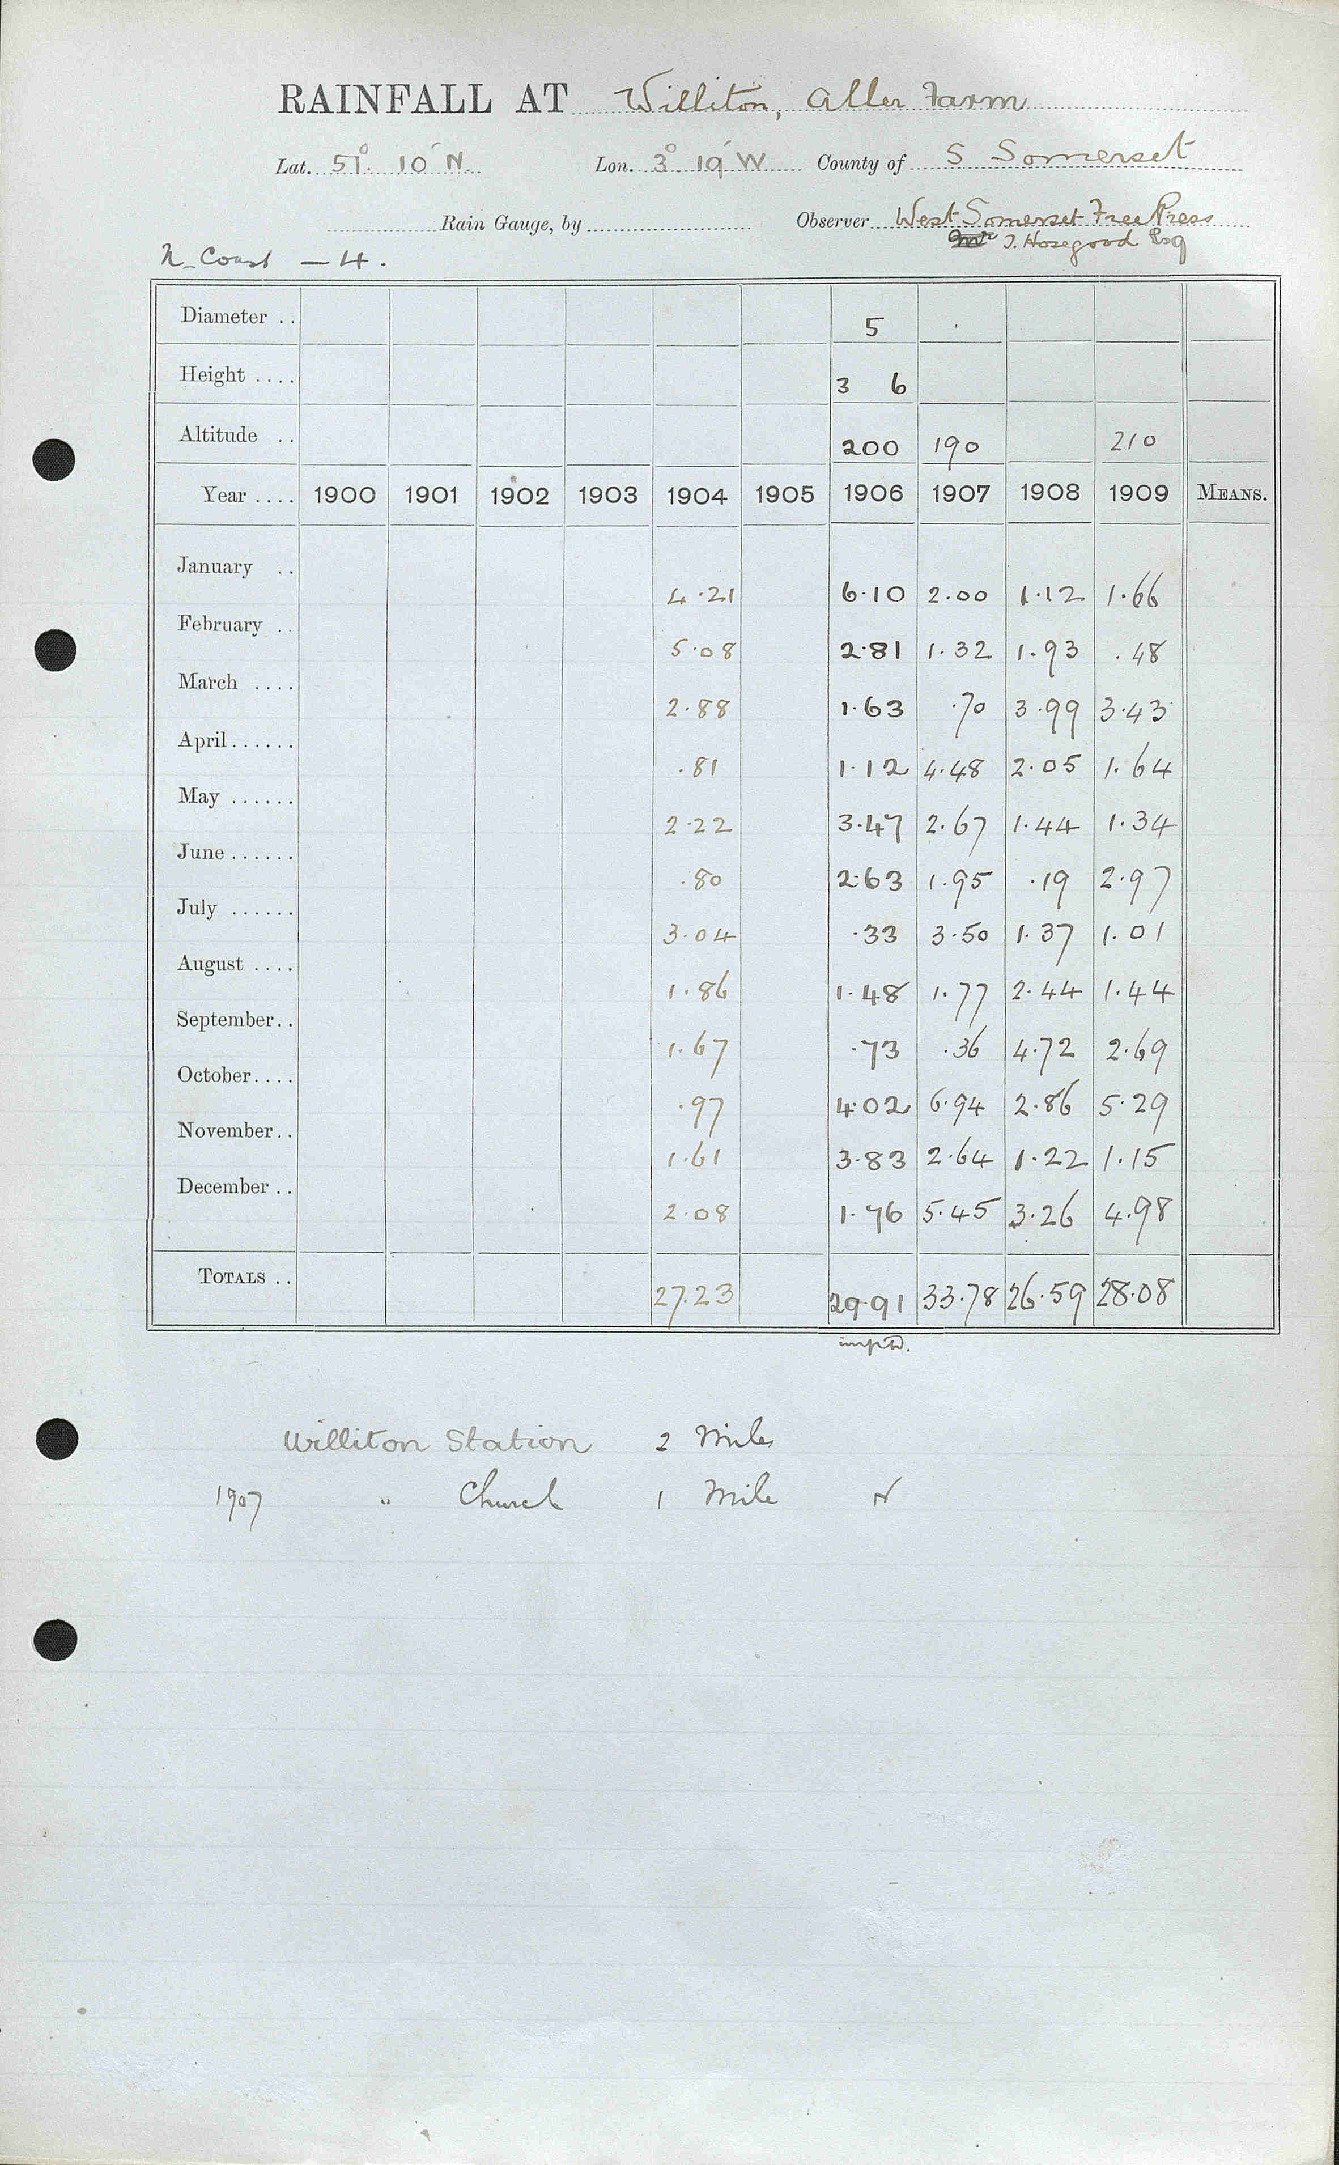 RAINFALL AT Williton, Aller Farm
Lat. 51° 10' N. Lon. 3° 19' W County of S Somerset
Rain Gauge, by Observer West Somerset Free Press
J. Hosegood Esq
N. Coast — 4.
Diameter .. 5
Height .... 3 6
Altitude .. 200 190 210
Year .... 1900 1901 1902 1903 1904 1905 1906 1907 1908 1909 MEANS.
January .. 4.21 6.10 2.00 1.12 1.66
February .. 5.08 2.81 1.32 1.93 .48
March .... 2.88 1.63 .70 3.99 3.43
April...... .81 1.12 4.48 2.05 1.64
May ...... 2.22 3.47 2.67 1.44 1.34
June...... .80 2.63 1.95 .19 2.97
July ...... 3.04 .33 3.50 1.37 1.01
August .... 1.86 1.48 1.77 2.44 1.44
September.. 1.67 .73 .36 4.72 2.69
October.... .97 4.02 6.94 2.86 5.29
November.. 1.61 3.83 2.64 1.22 1.15
December .. 2.08 1.76 5.45 3.26 4.98
TOTALS .. 27.23 29.91 33.78 26.59 28.08
Williton Station 2 Miles
1907 " Church 1 Mile N